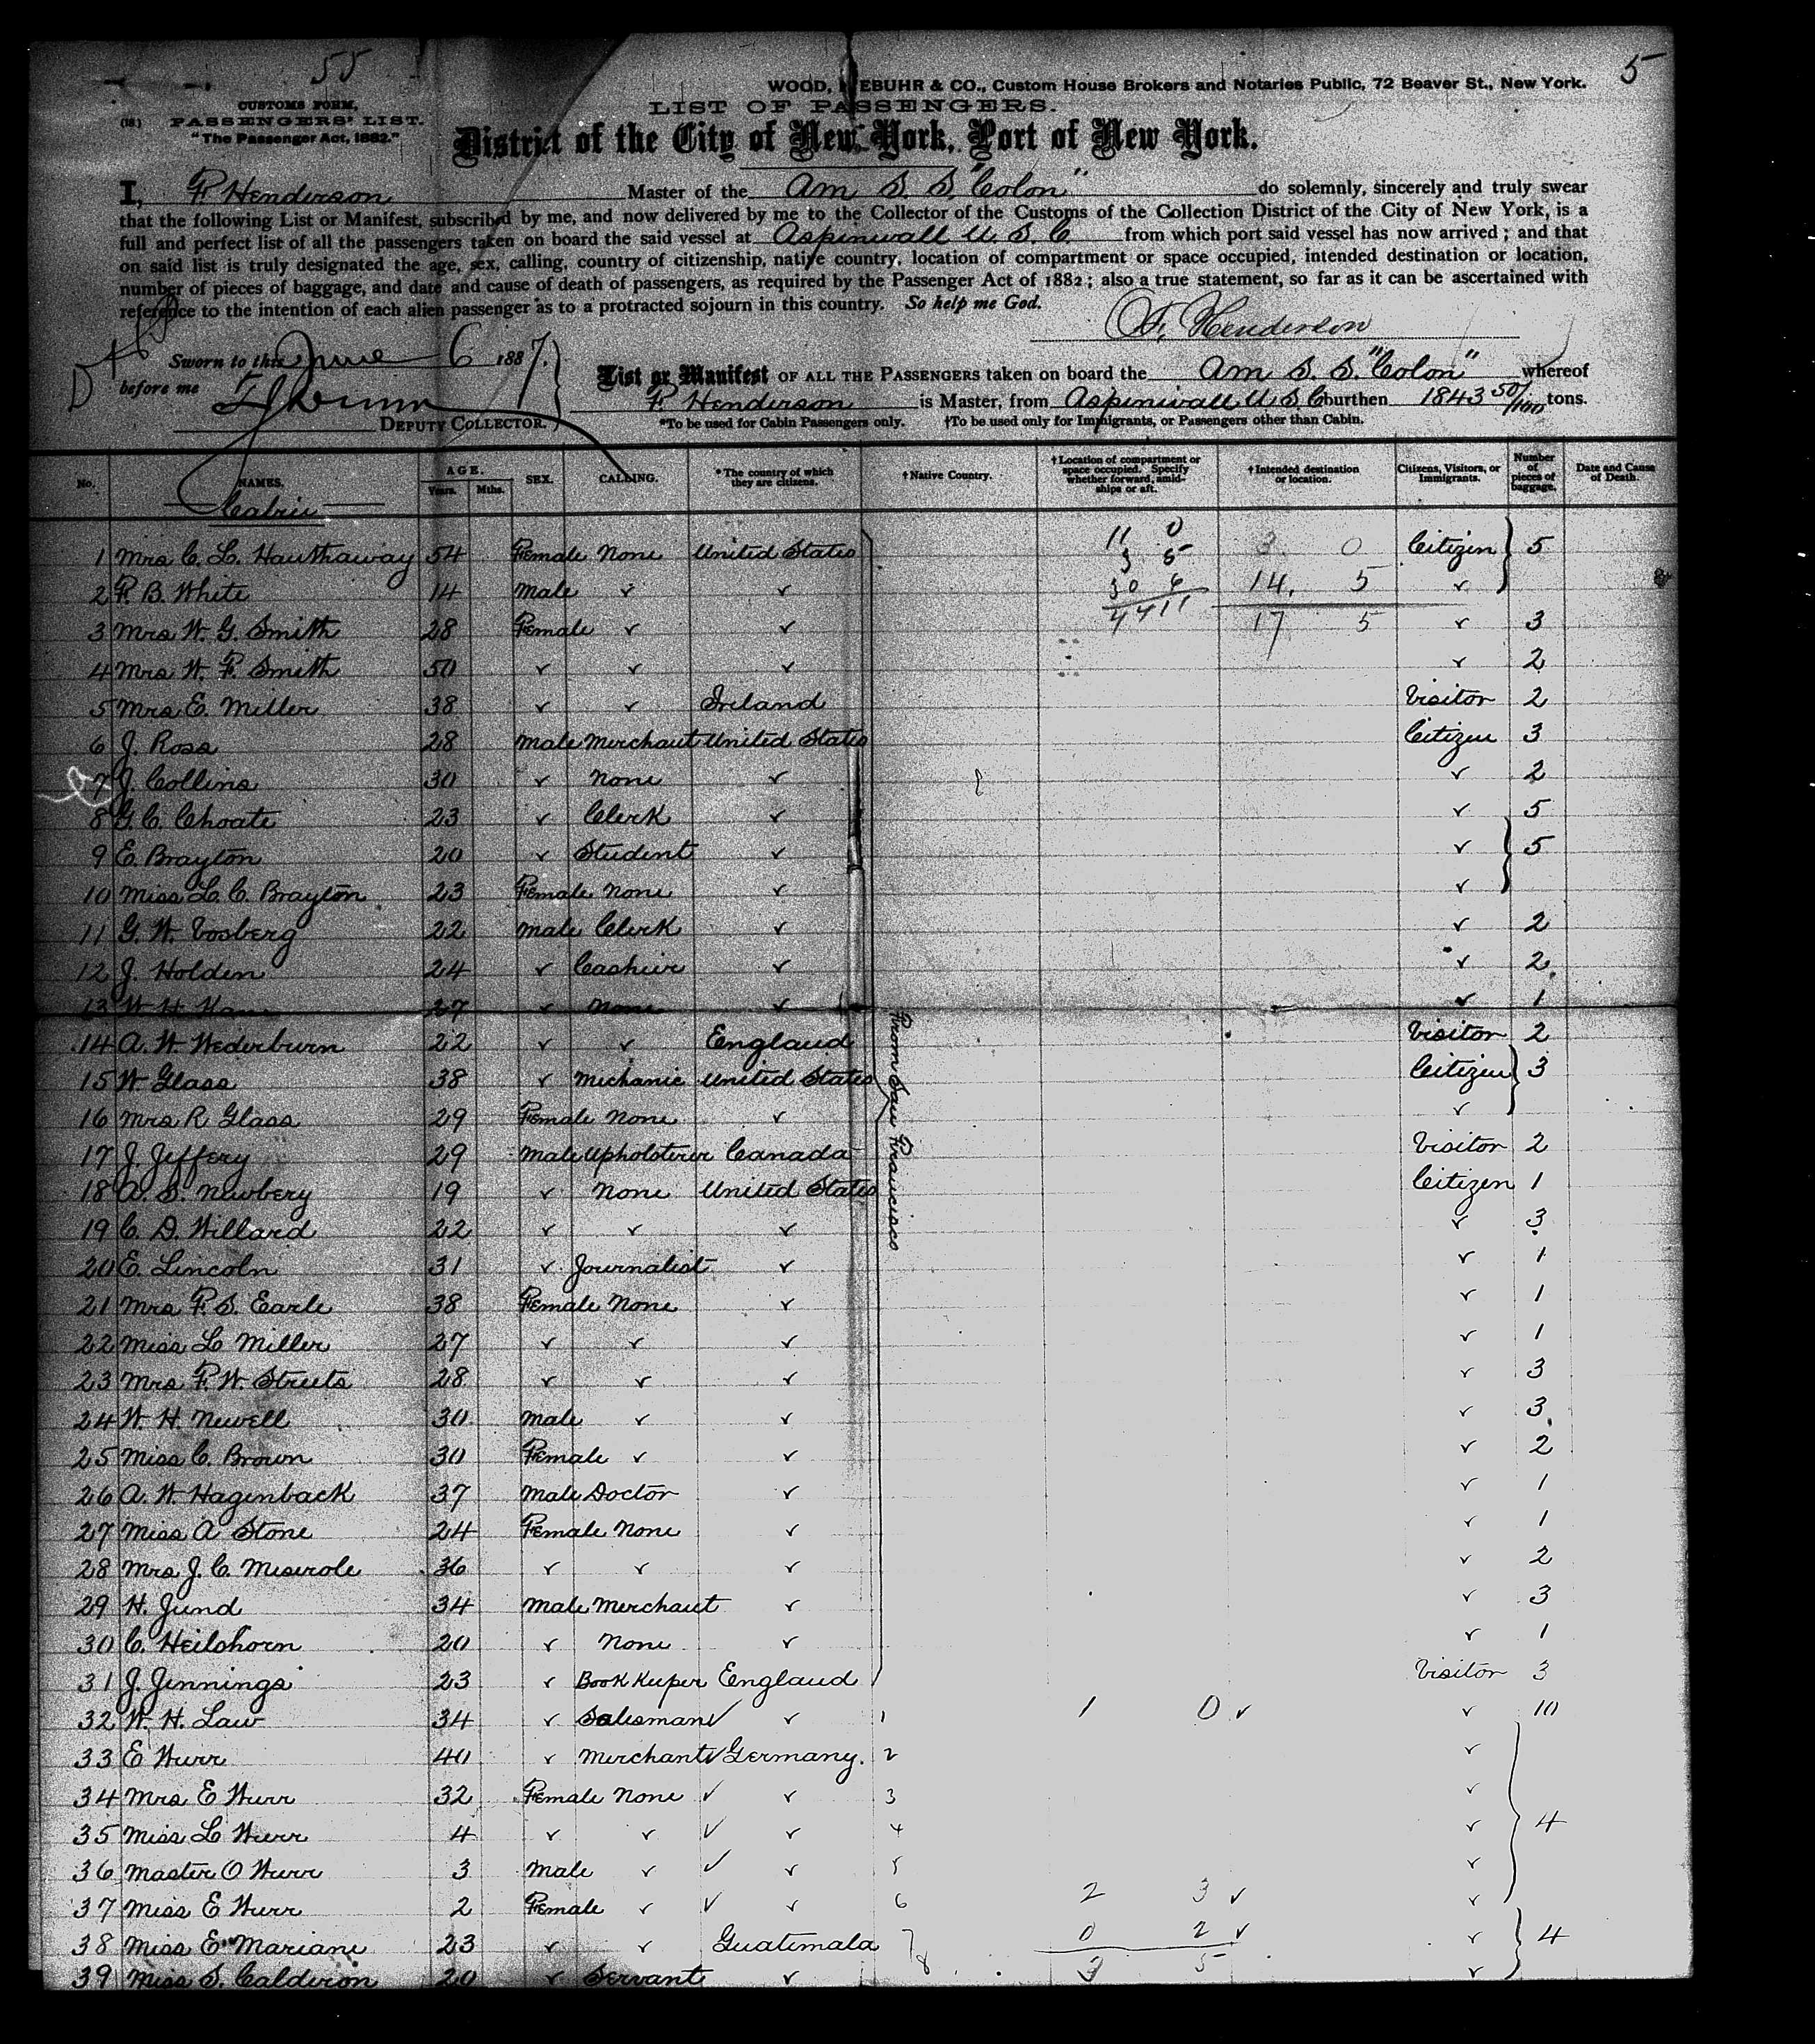 55
5
WOOD, & CO., Custom House Brokers and Notaries Public, 72 Beaver St., New York.
CUSTOMS FORM,
(18.) PASSENGERS' LIST.
"The Passenger Act, 1882."
LIST OF PASSENGERS.
District of the City of New York, Port of New York.
I, F. Henderson Master of the Am S. S. "Colon" do solemnly, sincerely and truly swear
that the following List or Manifest, subscribed by me, and now delivered by me to the Collector of the Customs of the Collection District of the City of New York, is a
full and perfect list of all the passengers taken on board the said vessel at Aspinwall U. S. C. from which port said vessel has now arrived; and that
on said list is truly designated the age, sex, calling, country of citizenship, native country, location of compartment or space occupied, intended destination or location,
number of pieces of baggage, and date and cause of death of passengers, as required by the Passenger Act of 1882; also a true statement, so far as it can be ascertained with
reference to the intention of each alien passenger as to a protracted sojourn in this country. So help me God.
F. Henderson
Sworn to this June 6 1887.
before me
DEPUTY COLLECTOR.
List or Manifest OF ALL THE PASSENGERS taken on board the Am S. S. "Colon" whereof
F. Henderson is Master, from Aspinwall U. S. C burthen 1843 50/100 tons.
*To be used for Cabin Passengers only. †To be used only for Immigrants, or Passengers other than Cabin.
No. NAMES. AGE. Years. Mths. SEX. CALLING. *The country of which they are citizens. †Native Country. †Location of compartment or space occupied. Specify whether forward, amidships or aft. †Intended destination or location. Citizens, Visitors, or Immigrants. Number of pieces of baggage. Date and Cause of Death.
Cabin
11 0
3 5 3. 0
30 6 14. 5
44 11 17 5
1 Mrs C. L. Hauthaway 54 Female None United States Citizen 5
2 F. B. White 14 Male ✓ ✓ ✓
3 Mrs W. G. Smith 28 Female ✓ ✓ ✓ 3
4 Mrs W. F. Smith 50 ✓ ✓ ✓ ✓ 2
5 Mrs E. Miller 38 ✓ ✓ Ireland Visitor 2
6 J. Ross 28 Male Merchant United States Citizen 3
7 J. Collins 30 ✓ None ✓ ✓ 2
8 G. C. Choate 23 ✓ Clerk ✓ ✓ 5
9 E. Brayton 20 ✓ Student ✓ ✓ 5
10 Miss L. C. Brayton 23 Female None ✓ ✓
11 G. W. Vosberg 22 Male Clerk ✓ ✓ 2
12 J. Holden 24 ✓ Cashier ✓ ✓ 2
13 W. H. 27 ✓ None ✓ ✓ 1
14 A. W. Wederburn 22 ✓ ✓ England Visitor 2
15 W Glass 38 ✓ Mechanic United States Citizen 3
16 Mrs R Glass 29 Female None ✓ ✓
17 J. Jeffery 29 Male Upholsterer Canada Visitor 2
18 A. S. Newbery 19 ✓ None United States Citizen 1
19 C. D. Willard 22 ✓ ✓ ✓ ✓ 3
20 E. Lincoln 31 ✓ Journalist ✓ ✓ 1
21 Mrs F. S. Earle 38 Female None ✓ ✓ 1
22 Miss L Miller 27 ✓ ✓ ✓ ✓ 1
23 Mrs F. W. Streets 28 ✓ ✓ ✓ ✓ 3
24 W. H. Newell 30 Male ✓ ✓ ✓ 3
25 Miss C. Brown 30 Female ✓ ✓ ✓ 2
26 A. W. Hagenback 37 Male Doctor ✓ ✓ 1
27 Miss A Stone 24 Female None ✓ ✓ 1
28 Mrs J. C. Meserole 36 ✓ ✓ ✓ ✓ 2
29 H. Jund 34 Male Merchant ✓ ✓ 3
30 C. Heilshorn 20 ✓ None ✓ ✓ 1
31 J. Jennings 23 ✓ Book Keeper England Visitor 3
From San Francisco
32 W. H. Law 34 ✓ Salesman ✓ ✓ 1 1 0 ✓ ✓ 10
33 E Wurr 40 ✓ Merchant ✓ Germany. 2 ✓
34 Mrs E Wurr 32 Female None ✓ ✓ 3 ✓
35 Miss L Wurr 4 ✓ ✓ ✓ ✓ 4 ✓ 4
36 Master O Wurr 3 Male ✓ ✓ ✓ 5 ✓
37 Miss E Wurr 2 Female ✓ ✓ ✓ 6 2 3 ✓ ✓
38 Miss E. Mariani 23 ✓ ✓ Guatemala 7 0 2 ✓ ✓ 4
39 Miss S. Calderon 20 ✓ Servant ✓ 8 3 5 ✓